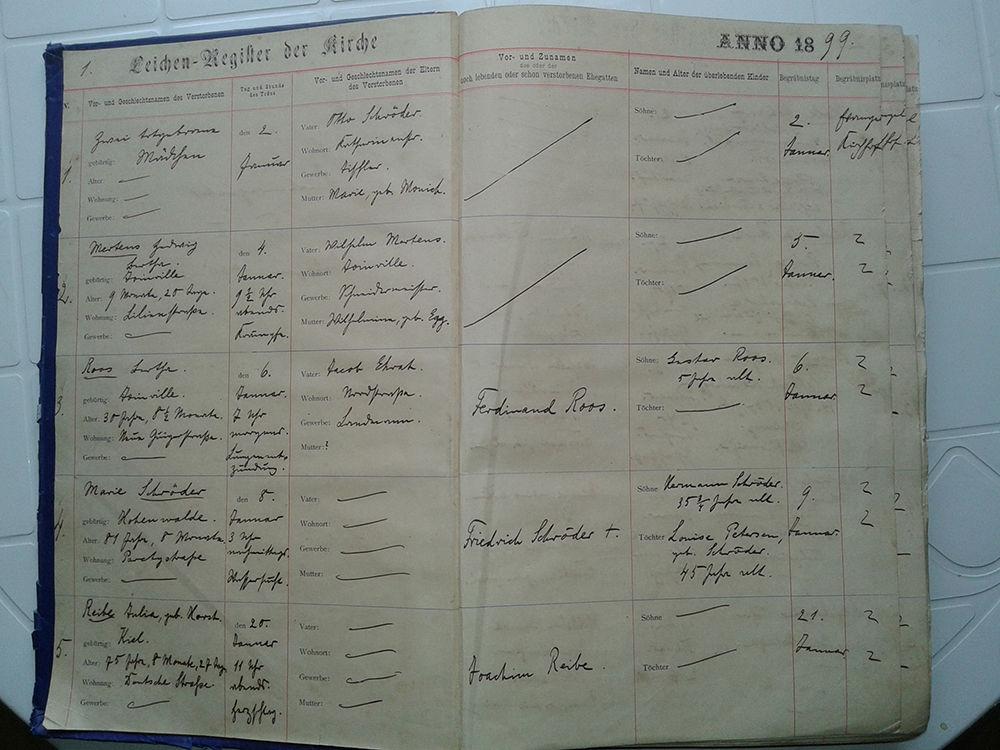 1. Leichen-Register der Kirche
ANNO 1899.
N. Vor- und Geschlechtsnamen des Verstorbenen
Tag und Stunde des Todes
Vor- und Geschlechtsnamen der Eltern des Verstorbenen
Vor- und Zunamen
des oder der
noch lebenden oder schon verstorbenen Ehegatten
Namen und Alter der überlebenden Kinder
Begräbnistag
Begräbnisplatz
1.
Zwei totgeborene
gebürtig: Mädchen
Alter: —
Wohnung: —
Gewerbe: —
den 2.
Januar
Vater: Otto Schröder.
Wohnort: Katharinenstr.
Gewerbe: Tischler.
Mutter: Marie, geb. Monich.
Söhne: —
Töchter: —
2.
Januar.
2.
Mertens Hedwig
Bertha.
gebürtig: Joinville
Alter: 9 Monate, 20 Tage.
Wohnung: Lilienstraße.
Gewerbe: —
den 4.
Januar.
9 ½ Uhr
abends.
Krämpfe.
Vater: Wilhelm Mertens.
Wohnort: Joinville.
Gewerbe: Schneidermeister.
Mutter: Wilhelmine, geb. Egg.
Söhne: —
Töchter: —
5.
Januar.
3
Roos Bertha.
gebürtig: Joinville.
Alter: 30 Jahre, 8 ½ Monate.
Wohnung: Neue
Gewerbe: —
den 6.
Januar.
7 Uhr
morgens.
Lungenent-
zündung.
Vater: Jacob Ehrat.
Wohnort: Nordstraße.
Gewerbe: Landmann.
Mutter: ?
Ferdinand Roos.
Söhne: Gustav Roos.
5 Jahre alt.
Töchter: —
6.
Januar
4
Marie Schröder
gebürtig: Hohenwalde.
Alter: 81 Jahre, 8 Monate.
Wohnung: Paratystraße
Gewerbe: —
den 8.
Januar
3 Uhr
nachmittags.
Wassersucht.
Vater: —
Wohnort: —
Gewerbe: —
Mutter: —
Friedrich Schröder †.
Söhne Hermann Schröder.
35 ¾ Jahre alt.
Töchter Louise Petersen,
geb. Schröder.
45 Jahre alt.
9.
Januar.
5.
Reibe Julia, geb. Horst.
gebürtig: Kiel.
Alter: 75 Jahre, 8 Monate, 27 Tage
Wohnung: Deutsche Straße
Gewerbe: —
den 20.
Januar
11 Uhr
abends.
Herzschlag.
Vater: —
Wohnort: —
Gewerbe: —
Mutter: —
Joachim Reibe.
Söhne —
Töchter —
21.
Januar